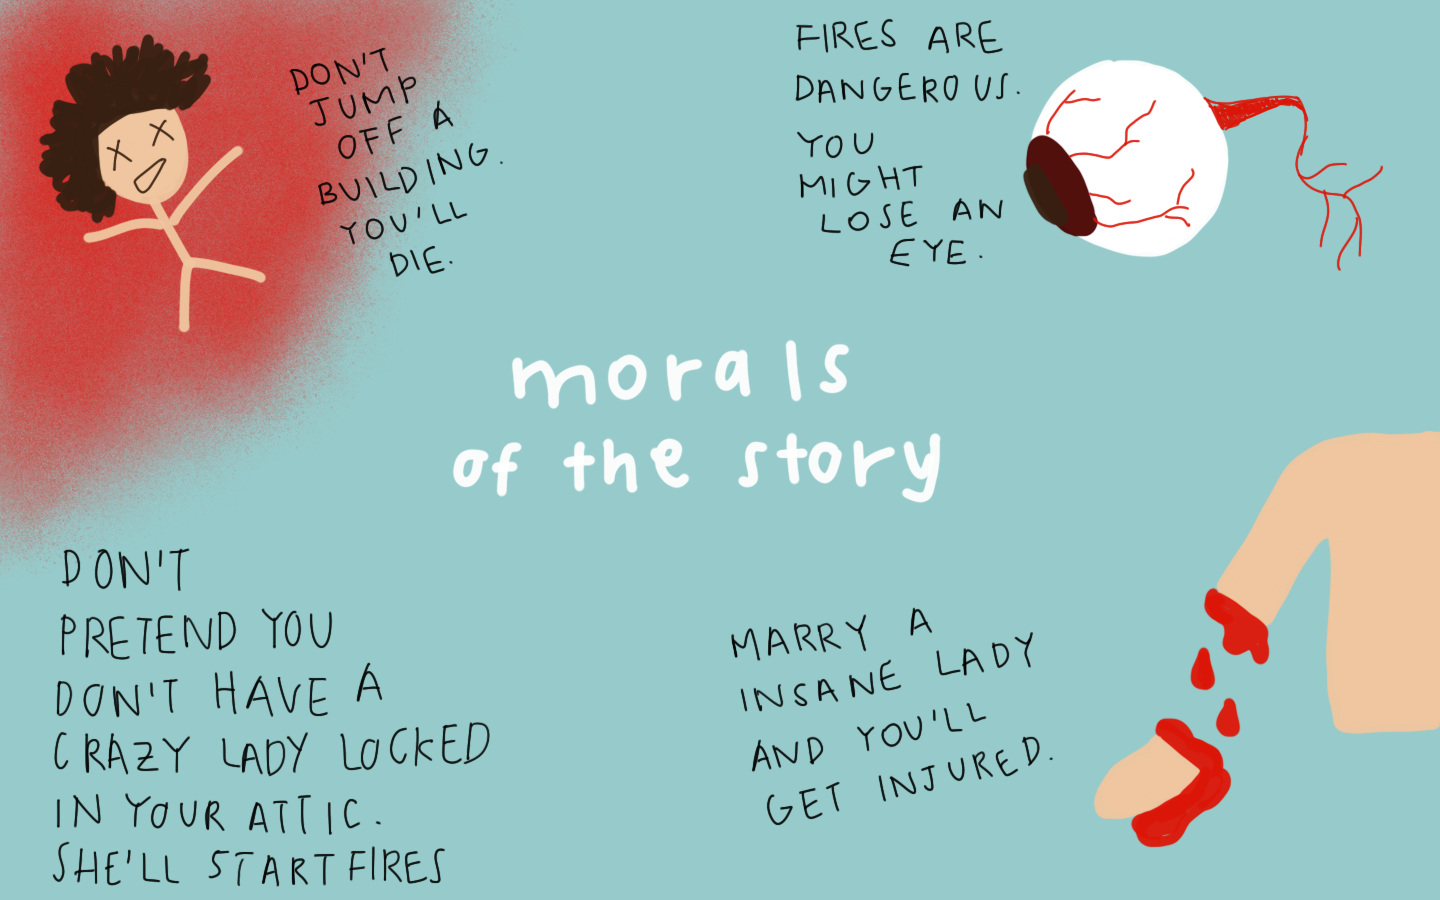 DON'T
JUMP
OFF A
BUILDING.
YOU'LL
DIE.
FIRES ARE
DANGEROUS.
YOU
MIGHT
LOSE AN
EYE.
morals
of the story
DON'T
PRETEND YOU
DON'T HAVE A
CRAZY LADY LOCKED
IN YOUR ATTIC.
SHE'LL START FIRES
MARRY A
INSANE LADY
AND YOU'LL
GET INJURED.